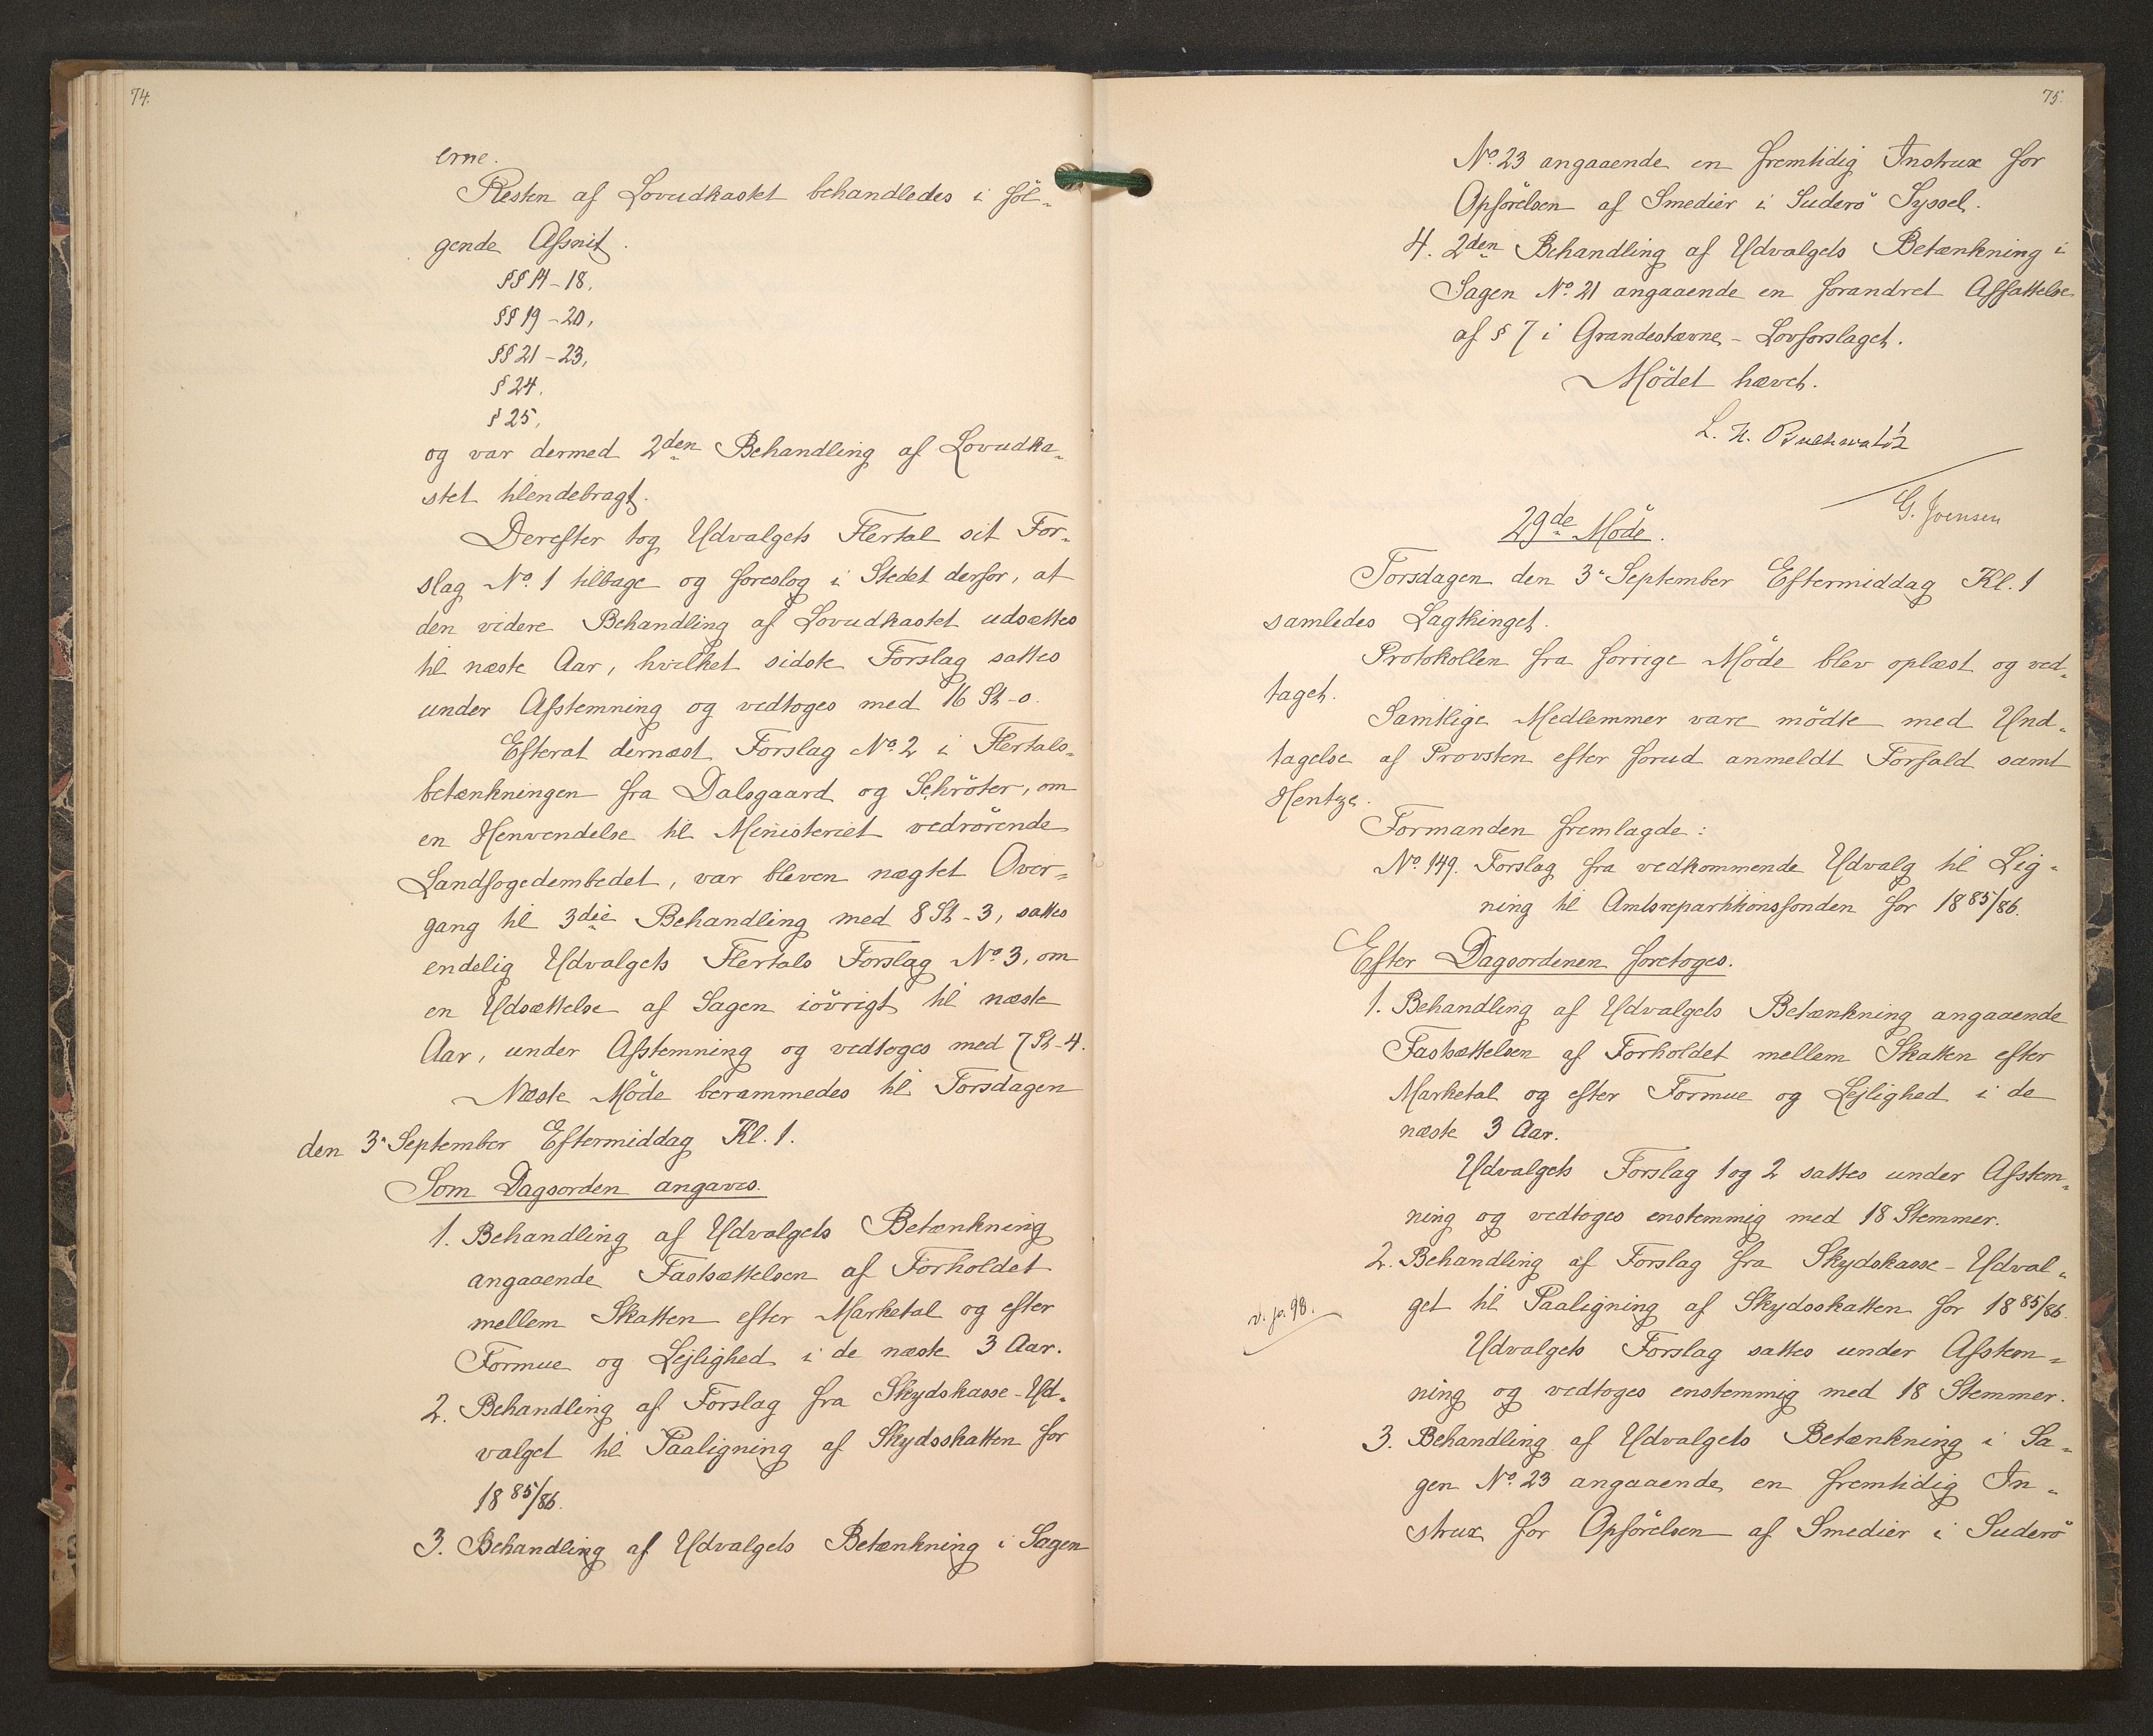 74.
erne.
Resten af Lovudkastet behandledes i föl-
gende Afsnit.
§§ 14-18,
§§ 19-20,
§§ 21-23,
§ 24.
§ 25,
og var dermed 2den Behandling af Lovudka-
stet tilendebragt.
Derefter tog Udvalgets Flertal sit For-
slag No. 1 tilbage og foreslog i Stedet derfor, at
den videre Behandling af Lovudkastet udsættes
til næste Aar, hvilket sidste Forslag sattes
under Afstemning og vedtoges med 16 St-0.
Efterat dernæst Forslag No. 2 i Flertals-
betænkningen fra Dalsgaard og Schröter, om
en Henvendelse til Ministeriet vedrörende
Landfogedembedet, var bleven nægtet Over-
gang til 3die Behandling med 8 St-3, sattes
endelig Udvalgets Flertals Forslag No. 3, om
en Udsættelse af Sagen iövrigt til næste
Aar, under Afstemning og vedtoges med 7 St-4.
Næste Möde berammedes til Torsdagen
den 3. September Eftermiddag Kl. 1.
Som Dagsorden angaves.
1. Behandling af Udvalgets Betænkning
angaaende Fastsættelsen af Forholdet
mellem Skatten efter Marketal og efter
Formue og Lejlighed i de næste 3 Aar.
2. Behandling af Forslag fra Skydskasse-Ud-
valget til Paaligning af Skydsskatten for
1885/86.
3. Behandling af Udvalgets Betænkning i Sagen
75.
No. 23 angaaende en fremtidig Instrux for
Opförelsen af Smedier i Suderö Syssel.
4. 2den Behandling af Udvalgets Betænkning i
Sagen No. 21 angaaende en forandret Affattelse
af § 7 i Grandestævne-Lovforslaget.
Mödet hævet.
L. H. Buchwaldt
G. Joensen
29de Möde.
Torsdagen den 3. September Eftermiddag Kl. 1
samledes Lagthinget.
Protokollen fra forrige Möde blev oplæst og ved-
taget.
Samtlige Medlemmer vare mödte med Und-
tagelse af Provsten efter forud anmeldt Forfald samt
Hentze.
Formanden fremlagde:
No. 149. Forslag fra vedkommende Udvalg til Lig-
ning til Amtsrepartitionsfonden for 1885/86.
Efter Dagsordenen foretoges.
1. Behandling af Udvalgets Betænkning angaaende
Fastsættelsen af Forholdet mellem Skatten efter
Marketal og efter Formue og Lejlighed i de
næste 3 Aar.
Udvalgets Forslag 1 og 2 sattes under Afstem-
ning og vedtoges enstemmig med 18 Stemmer.
2. Behandling af Forslag fra Skydskasse-Udval-
get til Paaligning af Skydsskatten for 1885/86.
v. p. 98.
Udvalgets Forslag sattes under Afstem-
ning og vedtoges enstemmig med 18 Stemmer.
3. Behandling af Udvalgets Betænkning i Sa-
gen No. 23 angaaende en fremtidig In-
strux for Opförelsen af Smedier i Suderö